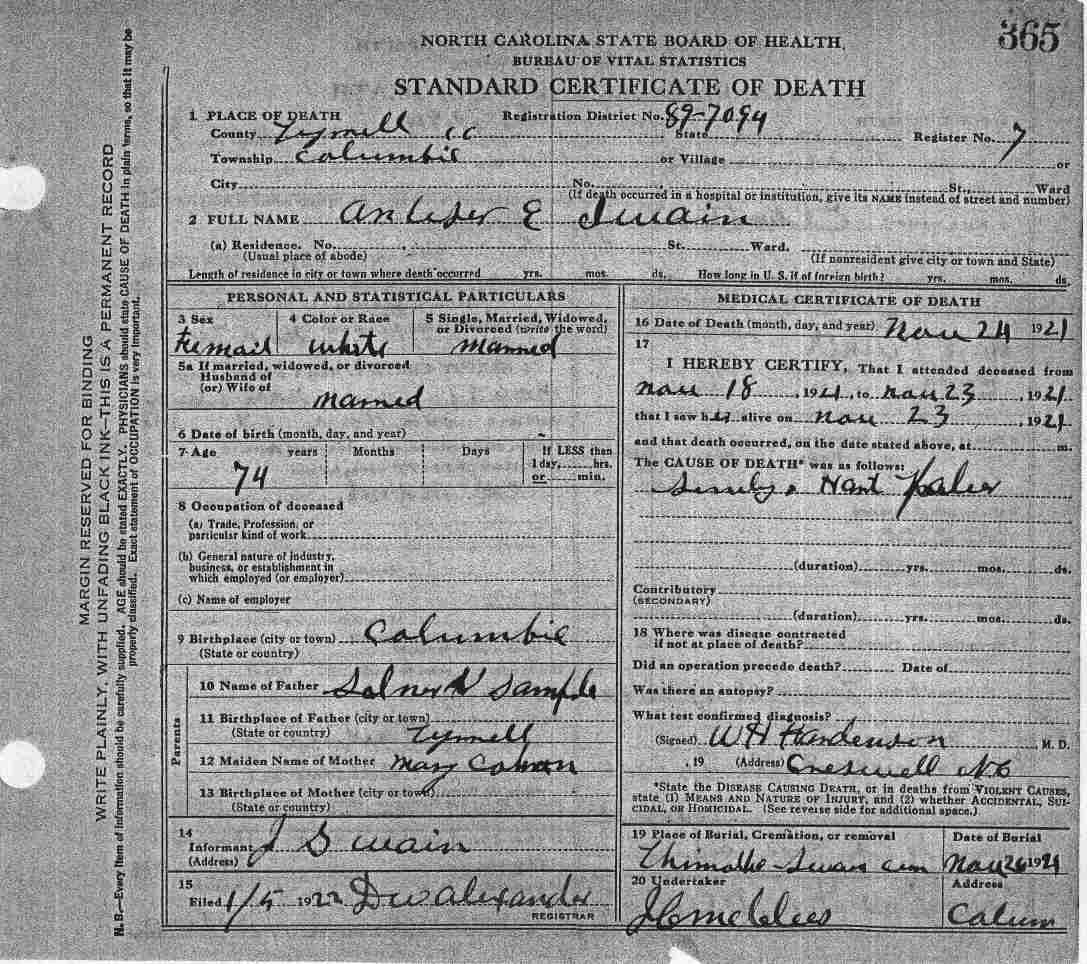 365
NORTH CAROLINA STATE BOARD OF HEALTH
BUREAU OF VITAL STATISTICS
STANDARD CERTIFICATE OF DEATH
1 PLACE OF DEATH Registration District No. 89-7094
County Tyrrell State Register No. 7
Township Columbia or Village or
City No. St., Ward
(If death occurred in a hospital or institution, give its NAME instead of street and number)
2 FULL NAME E Swain
(a) Residence. No. St. Ward.
(Usual place of abode) (If nonresident give city or town and State)
Length of residence in city or town where death occurred yrs. mos. ds. How long in U. S. if of foreign birth? yrs. mos. ds.
PERSONAL AND STATISTICAL PARTICULARS
3 Sex 4 Color or Race 5 Single, Married, Widowed, or Divorced (write the word)
Femail White Married
5a If married, widowed, or divorced
Husband of
(or) Wife of
Married
6 Date of birth (month, day, and year)
7 Age years Months Days If LESS than
1 day, hrs.
or min.
74
8 Occupation of deceased
(a) Trade, Profession, or
particular kind of work
(b) General nature of industry,
business, or establishment in
which employed (or employer)
(c) Name of employer
9 Birthplace (city or town) Columbia
(State or country)
Parents
10 Name of Father Sample
11 Birthplace of Father (city or town)
(State or country) Tyrrell
12 Maiden Name of Mother Mary
13 Birthplace of Mother (city or town)
(State or country)
14
Informant J Swain
(Address)
15
Filed 1/5 1922 D W Alexander
REGISTRAR
MEDICAL CERTIFICATE OF DEATH
16 Date of Death (month, day, and year) Nov 24 1921
17
I HEREBY CERTIFY, That I attended deceased from
Nov 18, 1921, to Nov 23, 1921
that I saw her alive on Nov 23, 1921
and that death occurred, on the date stated above, at m.
The CAUSE OF DEATH* was as follows:
(duration) yrs. mos. ds.
Contributory
(SECONDARY)
(duration) yrs. mos. ds.
18 Where was disease contracted
if not at place of death?
Did an operation precede death? Date of
Was there an autopsy?
What test confirmed diagnosis?
(Signed) W H Hardenson, M. D.
, 19 (Address) Creswell NC
*State the DISEASE CAUSING DEATH, or in deaths from VIOLENT CAUSES,
state (1) MEANS AND NATURE OF INJURY, and (2) whether ACCIDENTAL, SUI-
CIDAL, OR HOMICIDAL. (See reverse side for additional space.)
19 Place of Burial, Cremation, or removal Date of Burial
cem Nov 26 1921
20 Undertaker Address
J C McClees Colum
MARGIN RESERVED FOR BINDING
WRITE PLAINLY, WITH UNFADING BLACK INK—THIS IS A PERMANENT RECORD
N. B.—Every item of information should be carefully supplied. AGE should be stated EXACTLY. PHYSICIANS should state CAUSE OF DEATH in plain terms, so that it may be
properly classified. Exact statement of OCCUPATION is very important.